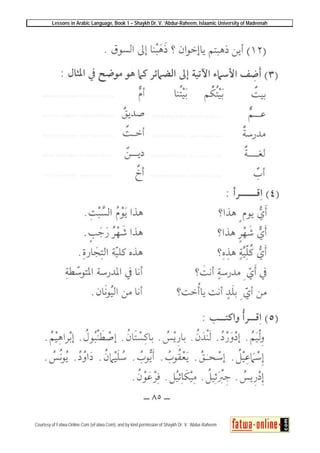 Lessons in Arabic Language, Book 1 – Shaykh Dr. V. 'Abdur-Raheem, Islaamic University of Madeenah
(١٢) أين ذهبتم يا إخوان ؟ ذَهَبْنا إلى السوق .
(٣) أَضِف الأسماء الآتية إلى الضمائر كما هو موضح في المثال :
بيتٌ بَيْتُكُم بَيْتُنا أمٌّ
عـــمٌّ صديقٌ
مدرسةٌ أخـــتٌ
لغـــــةٌ ديـــنٌ
أبٌ أخٌ
(٤) اِقـــــرأ :
أَيُّ يومٍ هذا؟ هذا يَوْمُ السَّبْتِ.
أَيُّ شَهْرٍ هذا؟ هذا شَهْرُ رَجَبٍ.
أَيُّ كُلِّيَّةٍ هذِهِ؟ هذه كليّة التِجَارة.
في أَيِّ مدرسةٍ أنتَ؟ أنا في المدرسة المتوسّطةِ
من أيِّ بلَدٍ أنت يا أُخت؟ أنا من اليُونَان.
(٥) اِقـــرأْ واكتـــب :
وِلْيَمُ. إِدْوَرْدُ. لَنْدَنُ. بارِيْسُ. باكِسْتَانُ. إِصْطَنْبُولُ. إِبْراهِيْمُ.
إِسْمَاعِيْلُ. إِسْحـٰقُ. يَعْقُوبُ. أَيُّوبُ. سُلَيْمَانُ. دَاوُدُ. يُونُسُ.
إِدْرِيسُ. جِبْرَئِيلُ. مِيْكَائِيْلُ. فِرْعَوْنُ.
— ٨٥ —
Courtesy of Fatwa-Online.Com (eFatwa.Com), and by kind permission of Shaykh Dr. V. 'Abdur-Raheem
fatwa-online.com